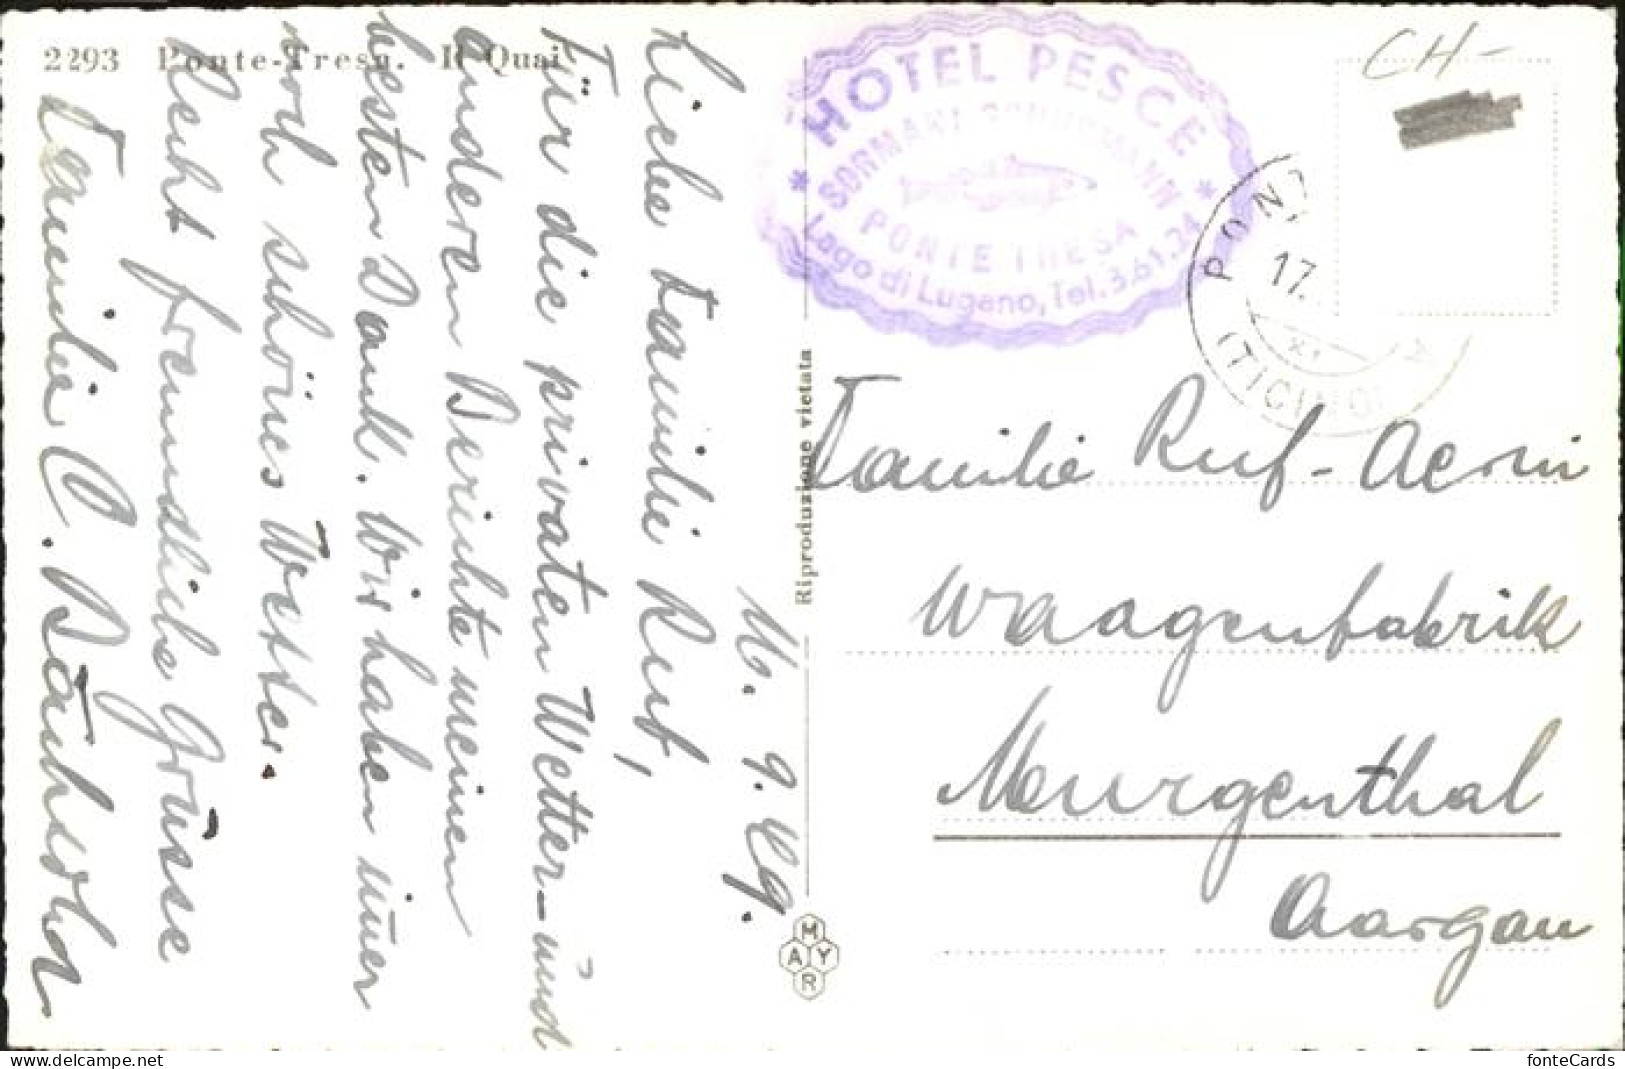 2293 Ponte-Tresa. Il Quai
Liebe Familie Ruf,
Für die privaten Wetter- und
anderen Berichte meinen
besten Dank. Wir haben im̄er
noch schönes Wetter.
Recht freundliche Grüsse
Familie O. Bärtschi
HOTEL PESCE
SORMANI SCHUHMANN
PONTE TRESA
Lago di Lugano, Tel. 3.61.24
CH-
PONT
17.
XI
A
(TICINO)
Riproduzione vietata
MAYR
Familie Ruf-Aerni
Waagenfabrik
Murgenthal
Aargau
fonteCards